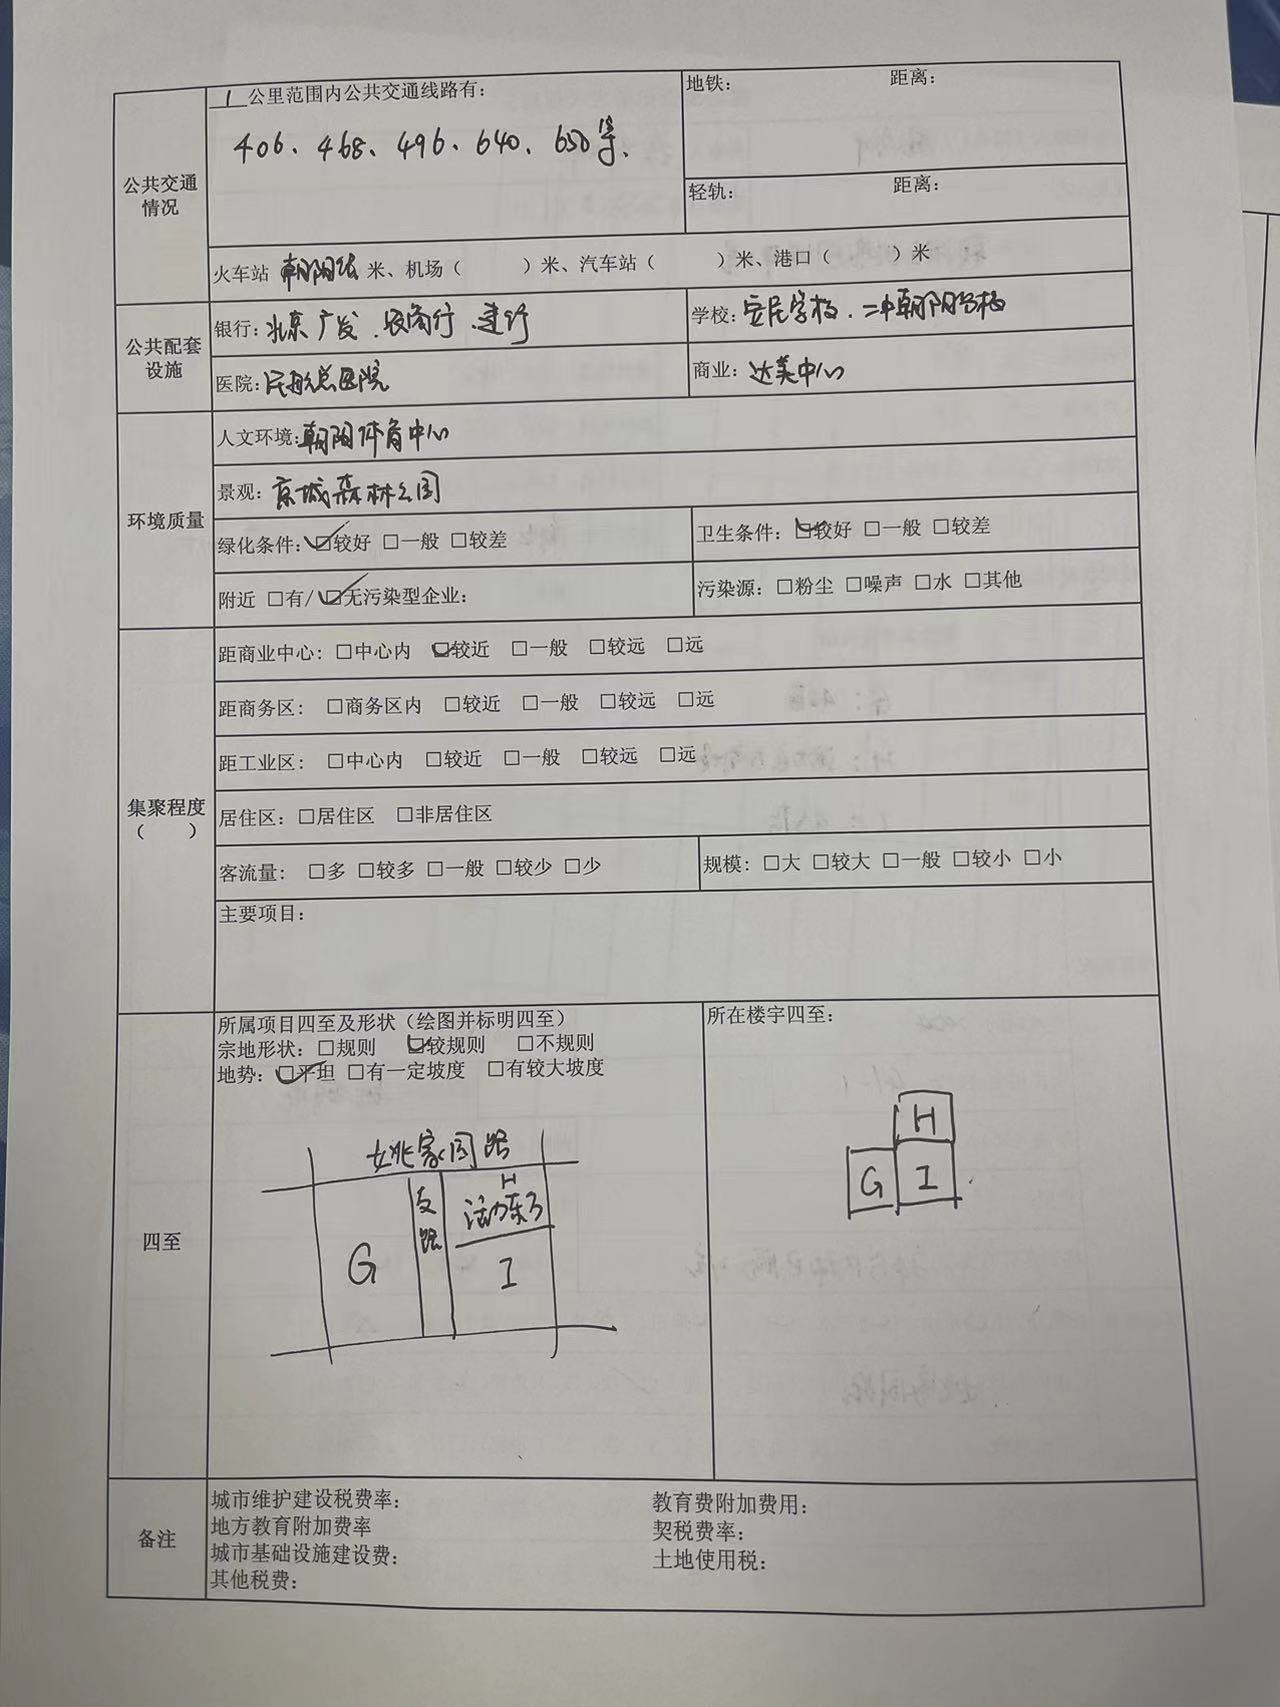 1 公里范围内公共交通线路有:
406、468、496、640、650等、
地铁: 距离:
轻轨: 距离:
公共交通情况
火车站 朝阳站 米、机场( )米、汽车站( )米、港口( )米
公共配套设施
银行: 北京 广发、农商行、建行
学校: 安民学校、二中朝阳学校
医院: 民航总医院
商业: 达美中心
环境质量
人文环境: 朝阳体育中心
景观: 京城森林公园
绿化条件: ☑较好 □一般 □较差
卫生条件: ☑较好 □一般 □较差
附近 □有/ ☑无污染型企业:
污染源: □粉尘 □噪声 □水 □其他
集聚程度
( )
距商业中心: □中心内 ☑较近 □一般 □较远 □远
距商务区: □商务区内 □较近 □一般 □较远 □远
距工业区: □中心内 □较近 □一般 □较远 □远
居住区: □居住区 □非居住区
客流量: □多 □较多 □一般 □较少 □少
规模: □大 □较大 □一般 □较小 □小
主要项目:
四至
所属项目四至及形状(绘图并标明四至)
宗地形状: □规则 ☑较规则 □不规则
地势: ☑平坦 □有一定坡度 □有较大坡度
姚家园路
G
支路
H
I
所在楼宇四至:
H
G I
备注
城市维护建设税费率: 教育费附加费用:
地方教育附加费率 契税费率:
城市基础设施建设费: 土地使用税:
其他税费: